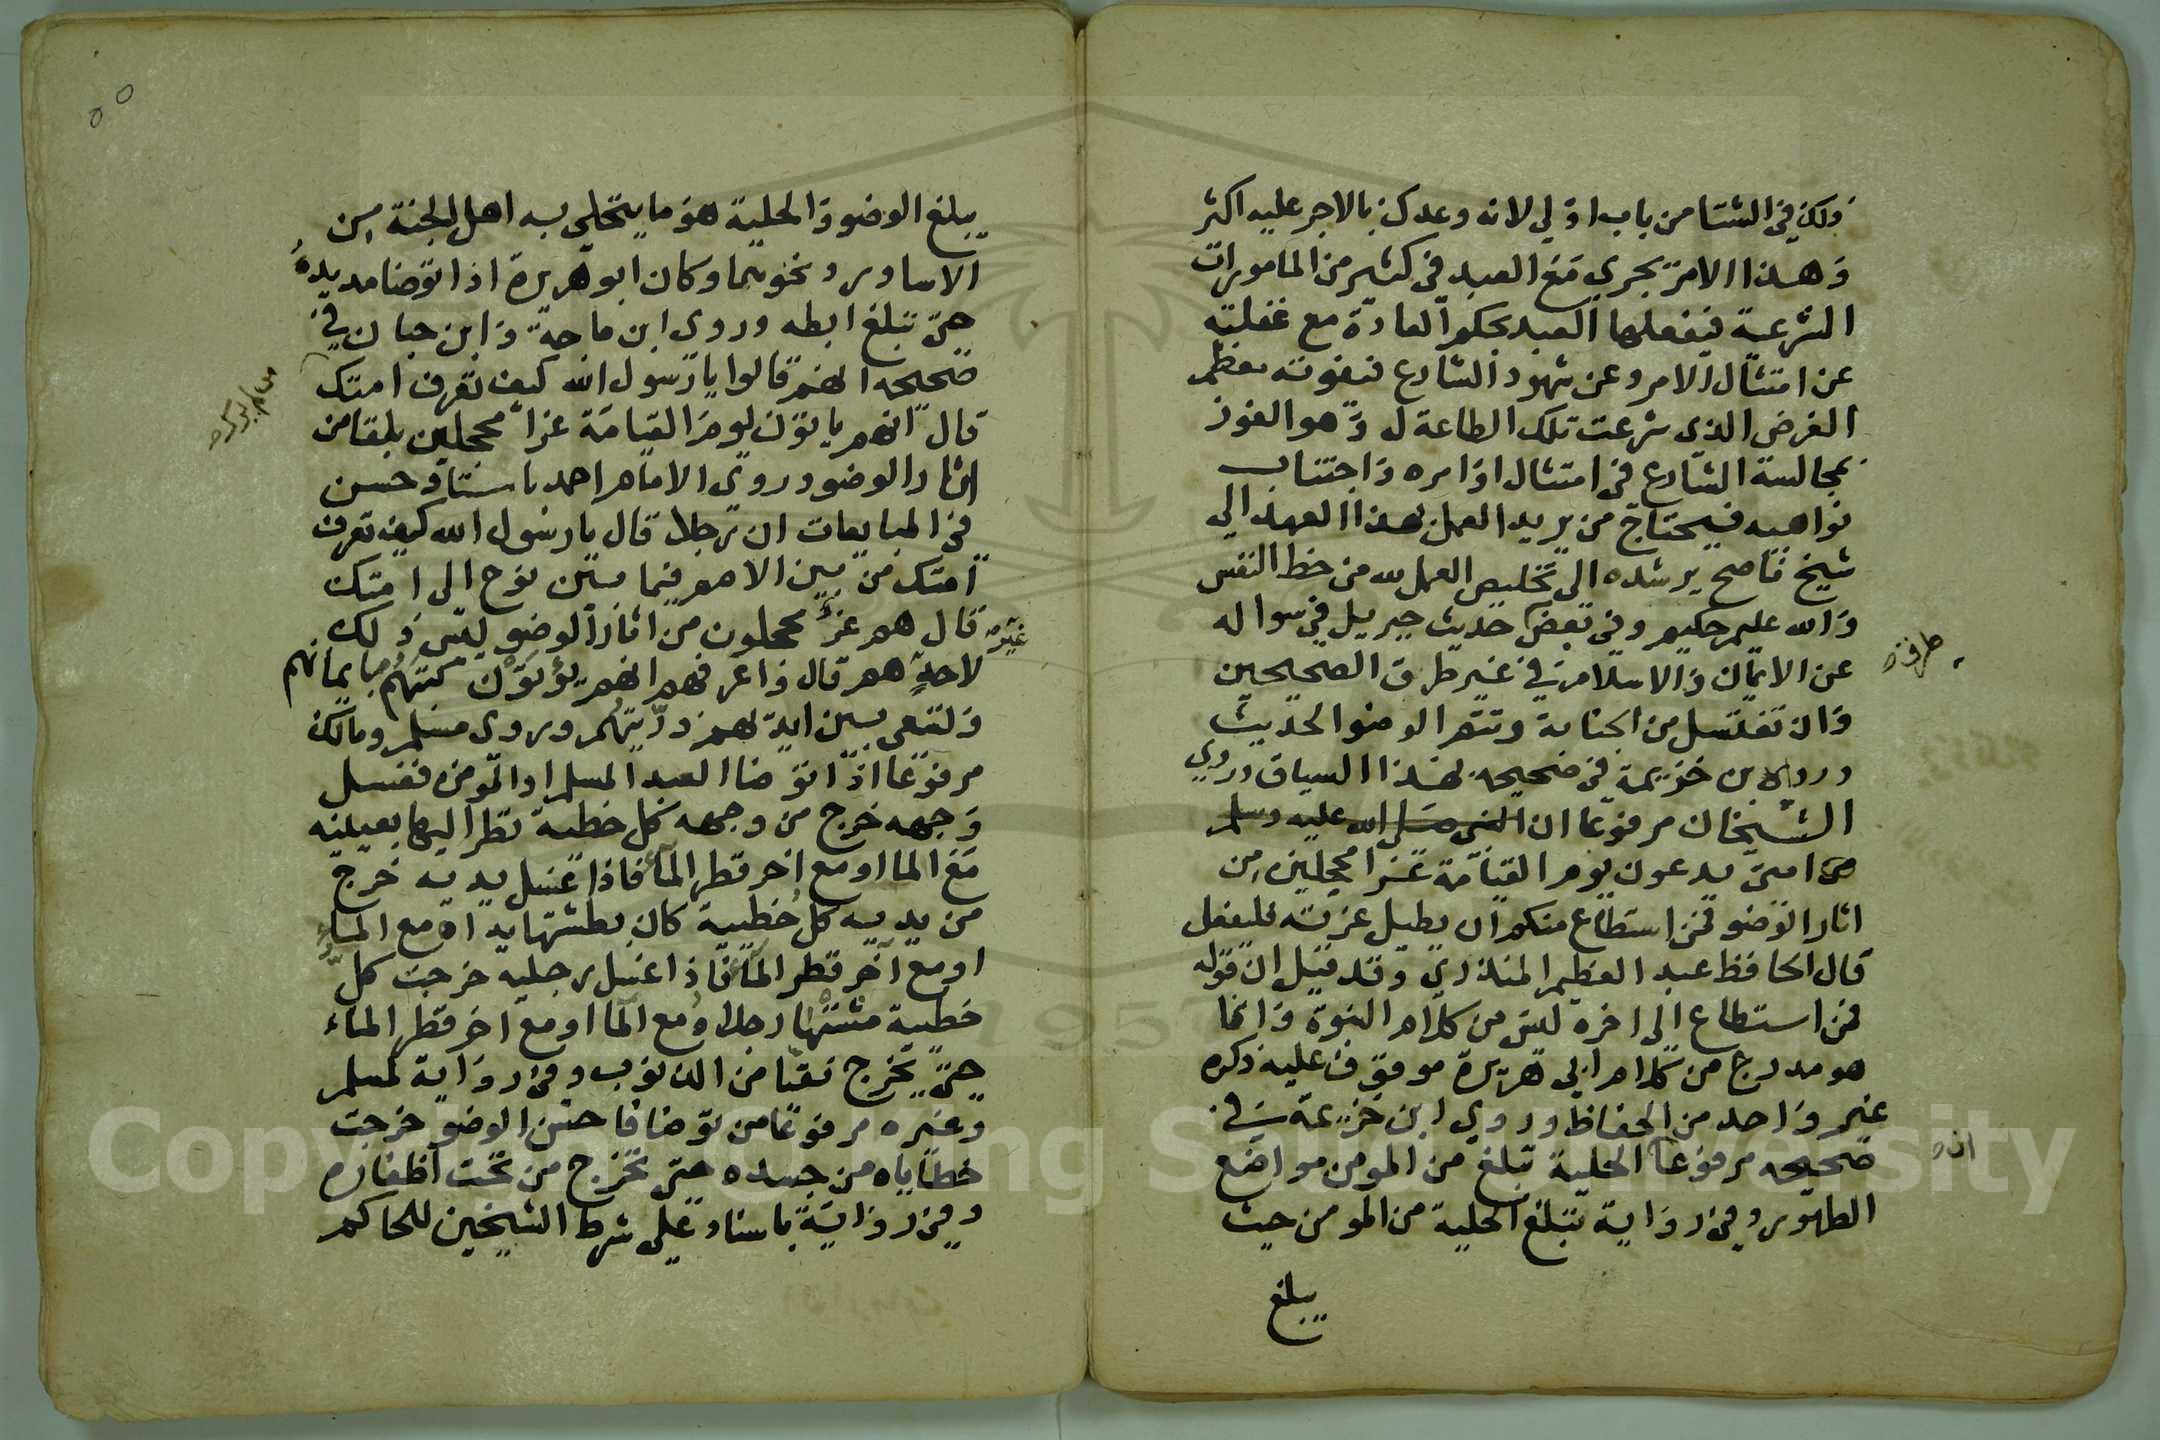 ولكن في الشتا من باب اولي لانه وعدك بالاجر عليه اكثر
وهذا الامر يجري مع العبد في كثير من المامورات
الشرعية فيفعلها العبد بحكم العادة مع غفلته
عن امتثال الامر وعن شهود الشارع فيفوته معظم
الغرض الذي شرعت تلك الطاعة له وهو الفوز
بمجالسة الشارع في امتثال اوامره واجتناب
نواهيه فيحتاج من يريد العمل بهذا العهد الي
شيخ ناصح يرشده الى تخليص العمل لله من حظ النفس
والله عليم حكيم وفي بعض حديث جبريل في سواله
عن الايمان والاسلام في غير طرق الصحيحين
طرق
وان تغتسل من الجنابة وتتم الوضو الحديث
ورواه بن خزيمة في صحيحه بهذا السياق وروي
الشيخان مرفوعا ان النبي صلى الله عليه وسلم
امتي يدعون يوم القيامة غرا محجلين من
اثار الوضو فمن استطاع منكم ان يطيل غرته فليفعل
قال الحافظ عبد العظيم المنذري وقد قيل ان قوله
فمن استطاع الى اخره ليس من كلام النبوة وانما
هو مدرج من كلام ابي هريرة موقوف عليه ذكره
غير واحد من الحفاظ وروي ابن خزيمة في
ان
صحيحه مرفوعا الحلية تبلغ من المومن مواضع
الطهور وفي رواية تبلغ الحلية من المومن حيث
يبلغ
٥٥
يبلغ الوضو والحلية هو ما يتحلي به اهل الجنة من
الاساور ونحوهما وكان ابو هريرة اذا توضا مد يده
حتى تبلغ ابطه وروي ابن ماجة وابن حبان في
صحيحه انهم قالوا يا رسول الله كيف تعرف امتك
قال انهم ياتون يوم القيامة غرا محجلين بلقا من
اثار الوضو وروي الامام احمد باسناد حسن
في المبايعات ان رجلا قال يا رسول الله كيف تعرف
امتك من بين الامم فيما بين نوح الى امتك
قال هم غر محجلون من اثار الوضو ليس ذلك
غيرهم
لاحد هم قال واعرفهم انهم يؤتون كتبهم بايمانهم
وتسعى بين ايديهم ذريتهم وروي مسلم ومالك
مرفوعا اذا توضا العبد المسلم او المومن فغسل
وجهه خرج من وجهه كل خطية نظر اليها بعينه
مع الما او مع اخر قطر الماء فاذا غسل يديه خرج
من يديه كل خطية كان بطشتها يداه مع الماء
او مع آخر قطر الماء فاذا غسل رجليه خرجت كل
خطية مشتها رجلاه مع الما او مع اخر قطر الماء
حتى يخرج نقيا من الذنوب وفي رواية لمسلم
وغيره مرفوعا من توضا فاحسن الوضو خرجت
خطاياه من جسده حتى تخرج من تحت اظفاره
وفي رواية باسناد علي شرط الشيخين للحاكم